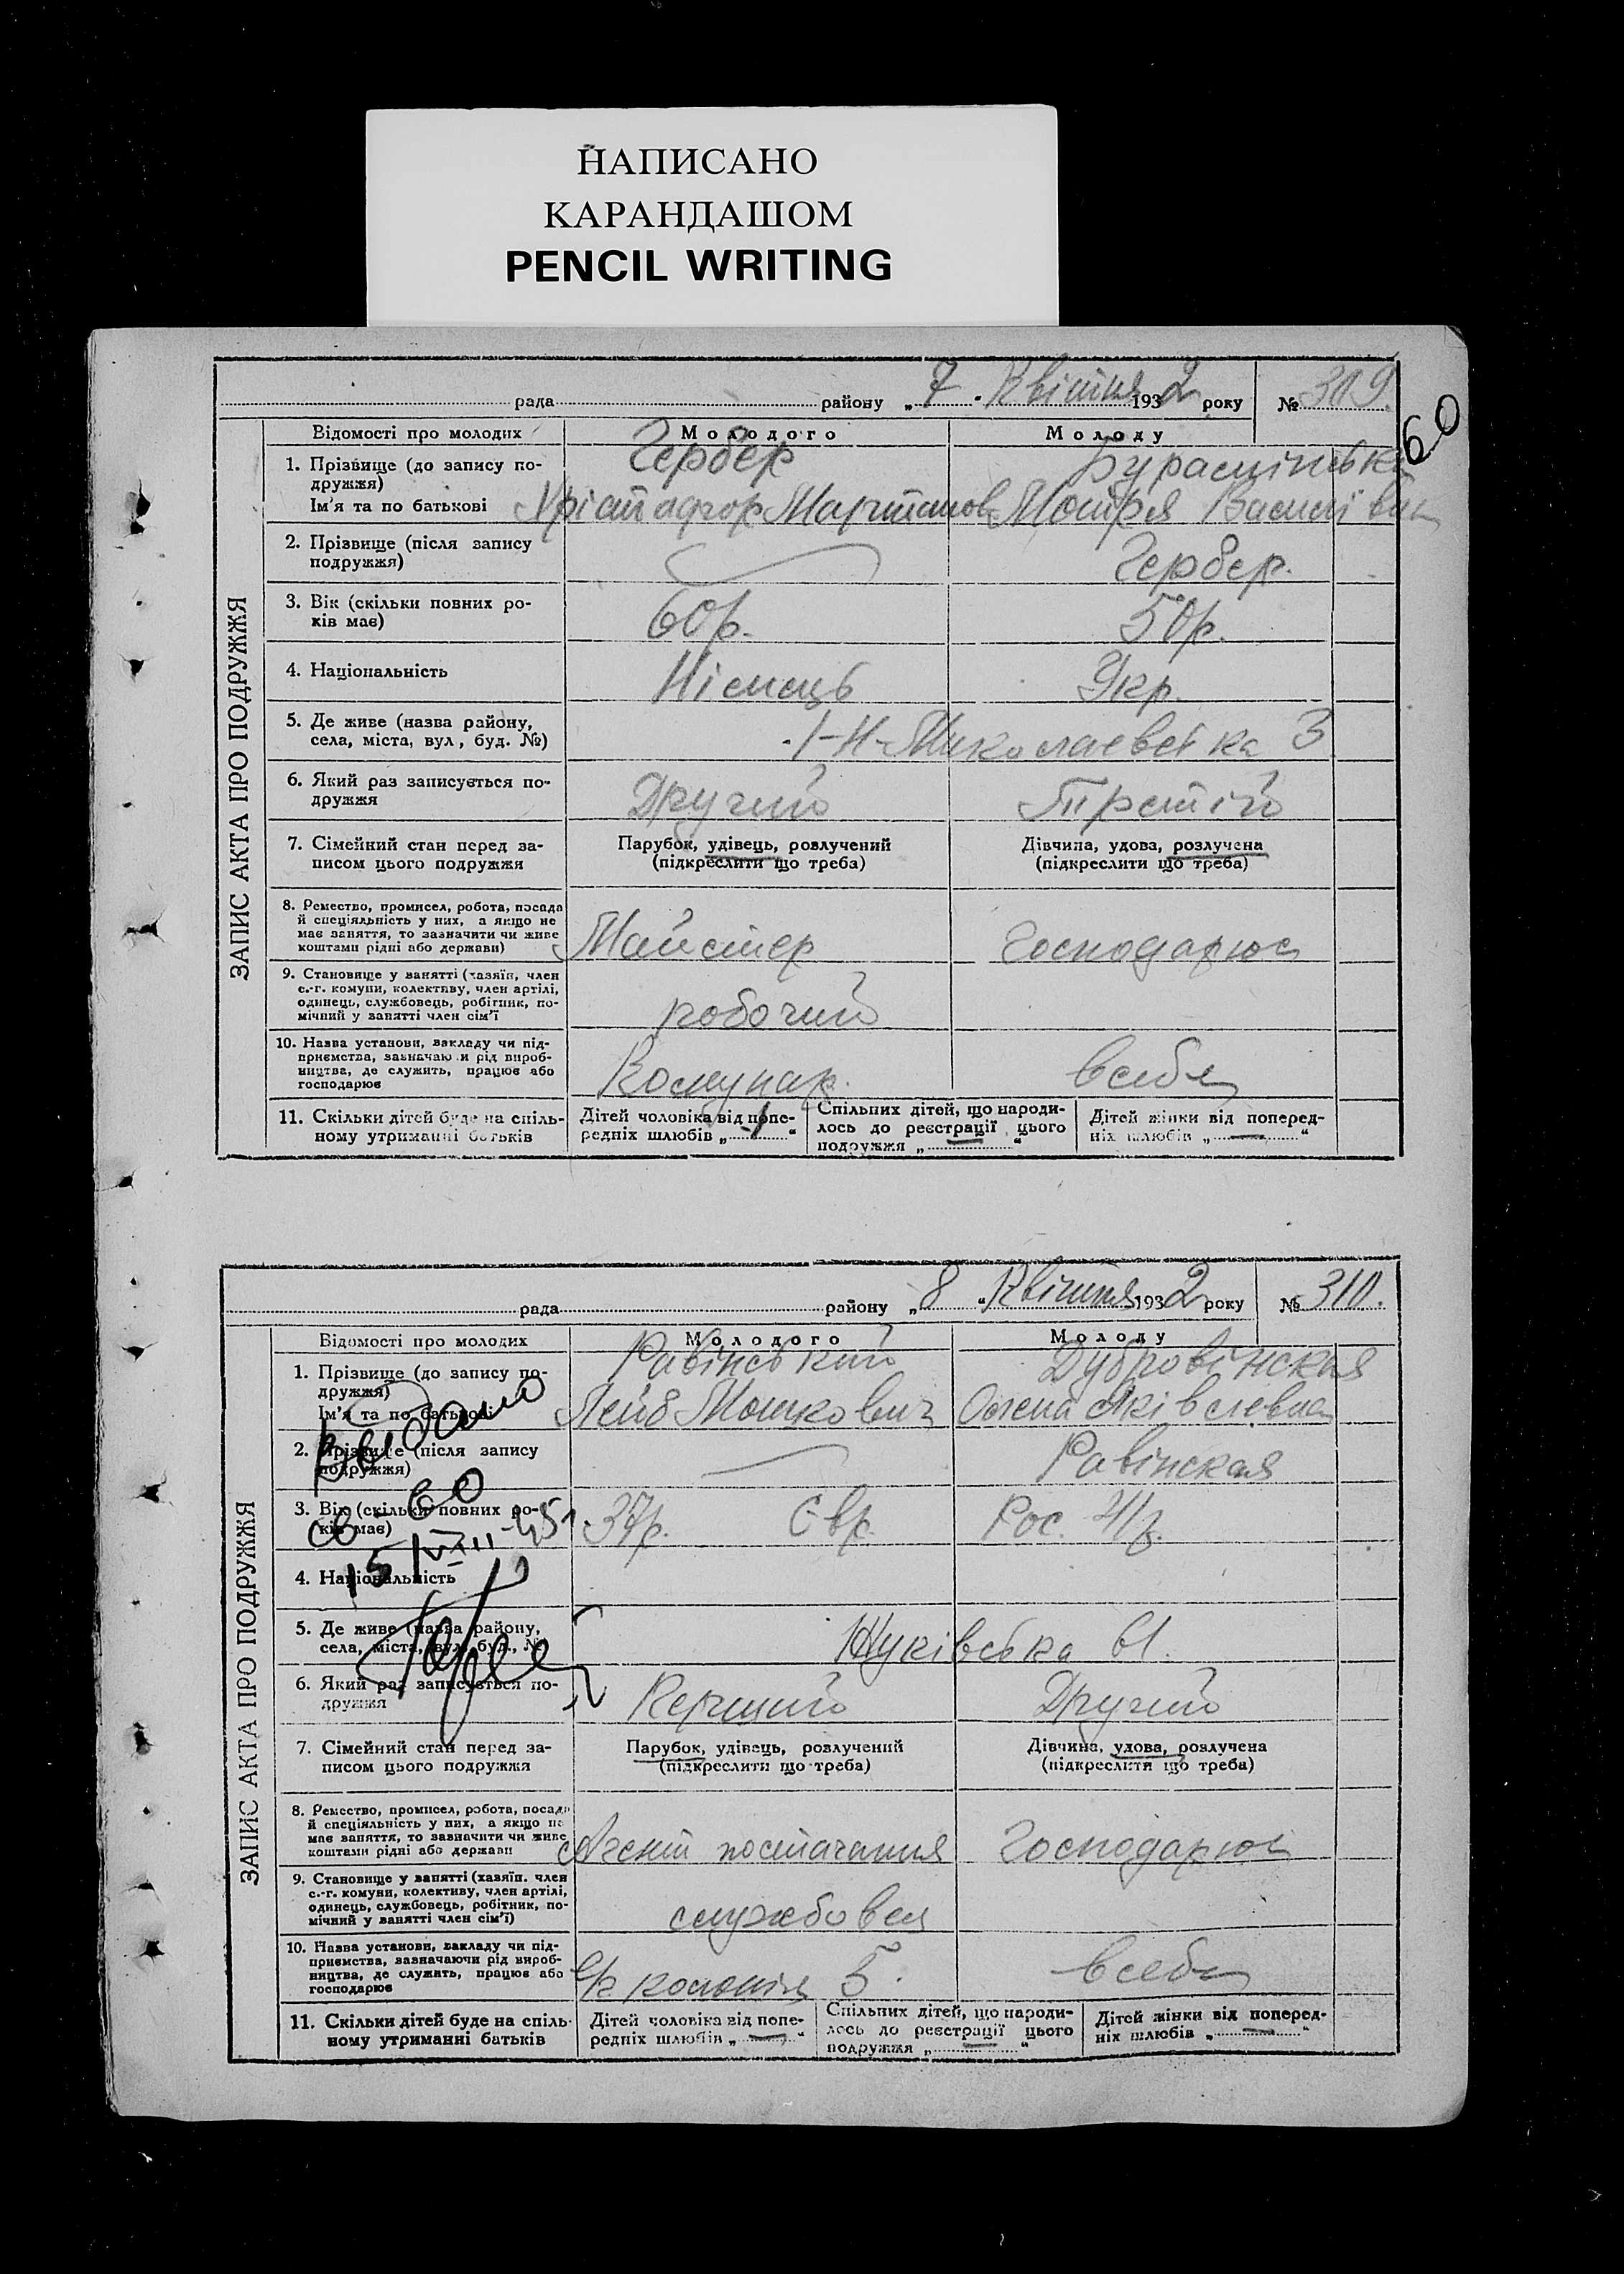 НАПИСАНО
КАРАНДАШОМ
PENCIL WRITING
60
рада району „7 Квітня 1932 року № 309.
ЗАПИС АКТА ПРО ПОДРУЖЖЯ
Відомості про молодих Молодого Молоду
1. Прізвище (до запису по- Гербер
дружжя)
Ім'я та по батькові Мотря Василівна
2. Прізвище (після запису
подружжя) Гербер.
3. Вік (скільки повних ро- 60р. 50р.
ків має)
4. Національність Німець Укр.
5. Де живе (назва району,
села, міста, вул, буд. №) 3
6. Який раз записується по- Другий Третій
дружжя
7. Сімейний стан перед за- Парубок, удівець, розлучений Дівчина, удова, розлучена
писом цього подружжя (підкреслити що треба) (підкреслити що треба)
8. Ремество, промисел, робота, посада
й спеціяльність у них, а якщо не
має заняття, то зазначити чи живе
коштами рідні або держави) Майстер Господарює
9. Становище у занятті (хазяїн, член
с.-г. комуни, колективу, член артілі,
одинець, службовець, робітник, по-
мічний у занятті член сім'ї робочий
10. Назва установи, закладу чи під-
приємства, зазначаючи рід вироб-
ництва, де служить, працює або
господарює Комунар. всебе
11. Скільки дітей буде на спіль- Дітей чоловіка від попе- Спільних дітей, що народи- Дітей жінки від поперед-
ному утриманні батьків редніх шлюбів „-1“ лось до реєстрації цього ніх шлюбів „—“
подружжя „—“
рада району „8“ Квітня 1932 року № 310.
ЗАПИС АКТА ПРО ПОДРУЖЖЯ
Відомості про молодих Молодого Молоду
1. Прізвище (до запису по- Равінський Дубровінская
дружжя)
Ім'я та по батькові Лейб Мошкович Олена Яківлевна
Выдано
2. Прізвище (після запису Равінская
подружжя)
св-во
3. Вік (скільки повних ро- 37р. Євр. Рос. 41р.
ків має)
15/VIII-45
4. Національність
5. Де живе (назва району,
села, міста, вул, буд., №)
6. Який раз записується по- Перший Другий
дружжя
7. Сімейний стан перед за- Парубок, удівець, розлучений Дівчина, удова, розлучена
писом цього подружжя (підкреслити що треба) (підкреслити що треба)
8. Ремество, промисел, робота, посада
й спеціяльність у них, а якщо не
має заняття, то зазначити чи живе
коштами рідні або держави Агент постачання Господарює
9. Становище у занятті (хазяїн. член
с.-г. комуни, колективу, член артілі,
одинець, службовець, робітник, по-
мічний у занятті член сім'ї) службовец
10. Назва установи, закладу чи під-
приємства, зазначаючи рід вироб-
ництва, де служить, працює або
господарює колонія 5. всебе
11. Скільки дітей буде на спіль- Дітей чоловіка від попе- Спільних дітей, що народи- Дітей жінки від поперед-
ному утриманні батьків редніх шлюбів „—“ лось до реєстрації цього ніх шлюбів „—“
подружжя „—“